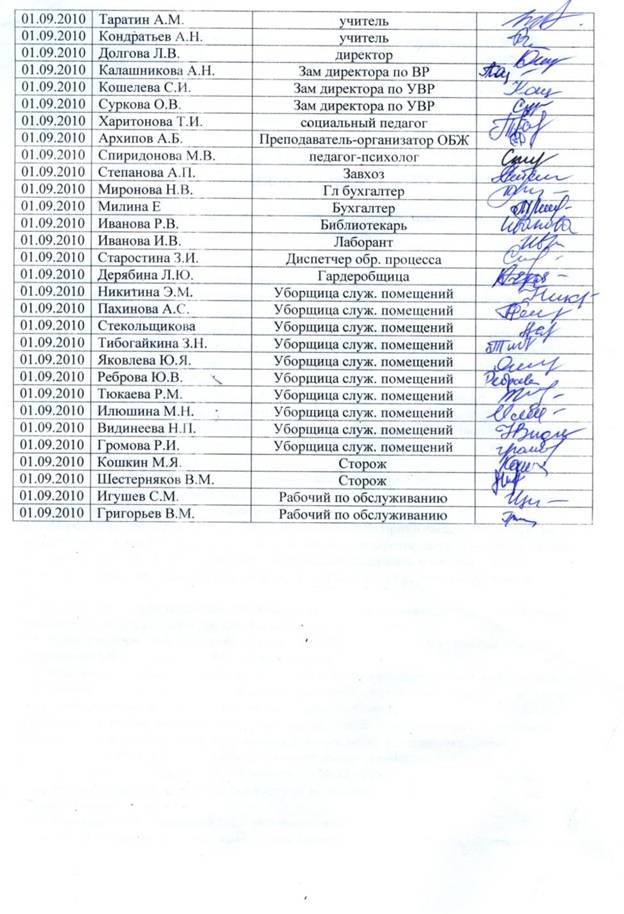 01.09.2010 Таратин А.М. учитель
01.09.2010 Кондратьев А.Н. учитель
01.09.2010 Долгова Л.В. директор
01.09.2010 Калашникова А.Н. Зам директора по ВР
01.09.2010 Кошелева С.И. Зам директора по УВР
01.09.2010 Суркова О.В. Зам директора по УВР
01.09.2010 Харитонова Т.И. социальный педагог
01.09.2010 Архипов А.Б. Преподаватель-организатор ОБЖ
01.09.2010 Спиридонова М.В. педагог-психолог
01.09.2010 Степанова А.П. Завхоз
01.09.2010 Миронова Н.В. Гл бухгалтер
01.09.2010 Милина Е Бухгалтер
01.09.2010 Иванова Р.В. Библиотекарь Иванова
01.09.2010 Иванова И.В. Лаборант
01.09.2010 Старостина З.И. Диспетчер обр. процесса
01.09.2010 Дерябина Л.Ю. Гардеробщица
01.09.2010 Никитина Э.М. Уборщица служ. помещений
01.09.2010 Пахинова А.С. Уборщица служ. помещений
01.09.2010 Стекольщикова Уборщица служ. помещений
01.09.2010 Тибогайкина З.Н. Уборщица служ. помещений
01.09.2010 Яковлева Ю.Я. Уборщица служ. помещений
01.09.2010 Реброва Ю.В. Уборщица служ. помещений
01.09.2010 Тюкаева Р.М. Уборщица служ. помещений
01.09.2010 Илюшина М.Н. Уборщица служ. помещений
01.09.2010 Видинеева Н.П. Уборщица служ. помещений
01.09.2010 Громова Р.И. Уборщица служ. помещений
01.09.2010 Кошкин М.Я. Сторож
01.09.2010 Шестерняков В.М. Сторож
01.09.2010 Игушев С.М. Рабочий по обслуживанию
01.09.2010 Григорьев В.М. Рабочий по обслуживанию